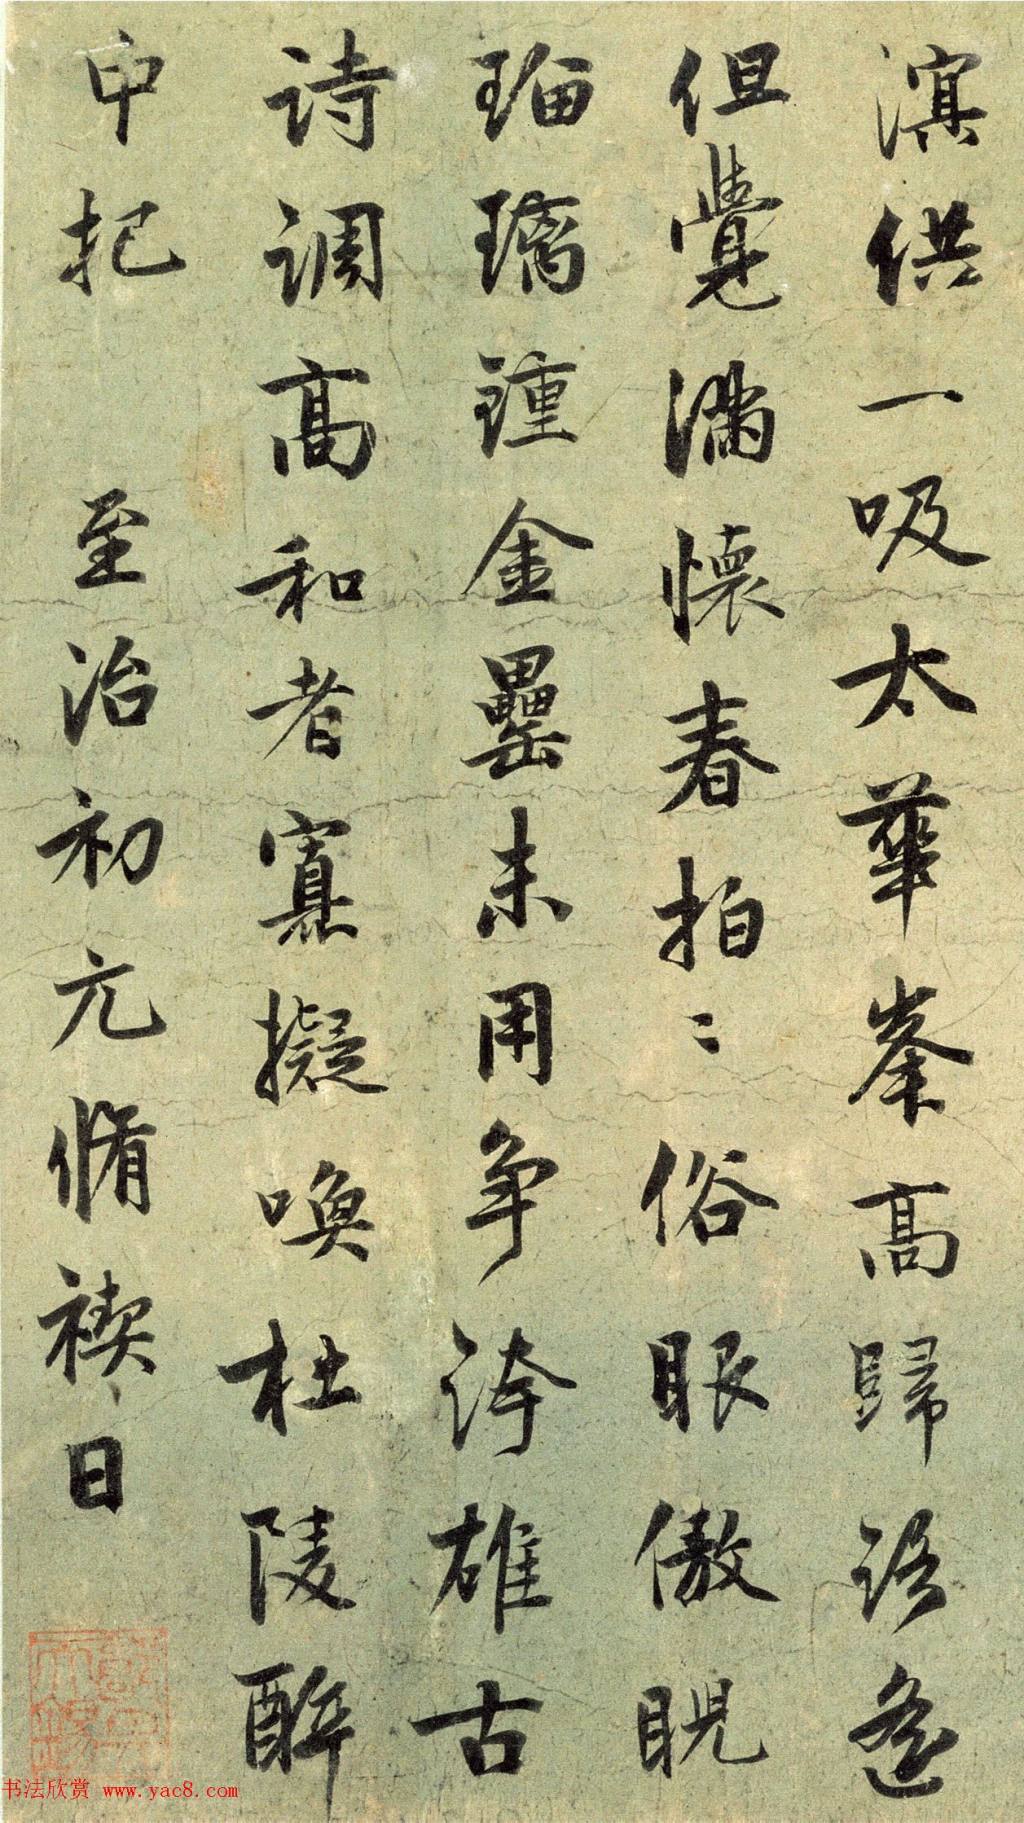 溟供一吸太華峯高歸語遙
但覺滿懷春拍〻俗眼傲睨
瑠璃鍾金罍未用争誇雄古
詩調高和者寡擬喚杜陵醉
中把
至治初元脩禊日
书法欣赏 www.yac8.com